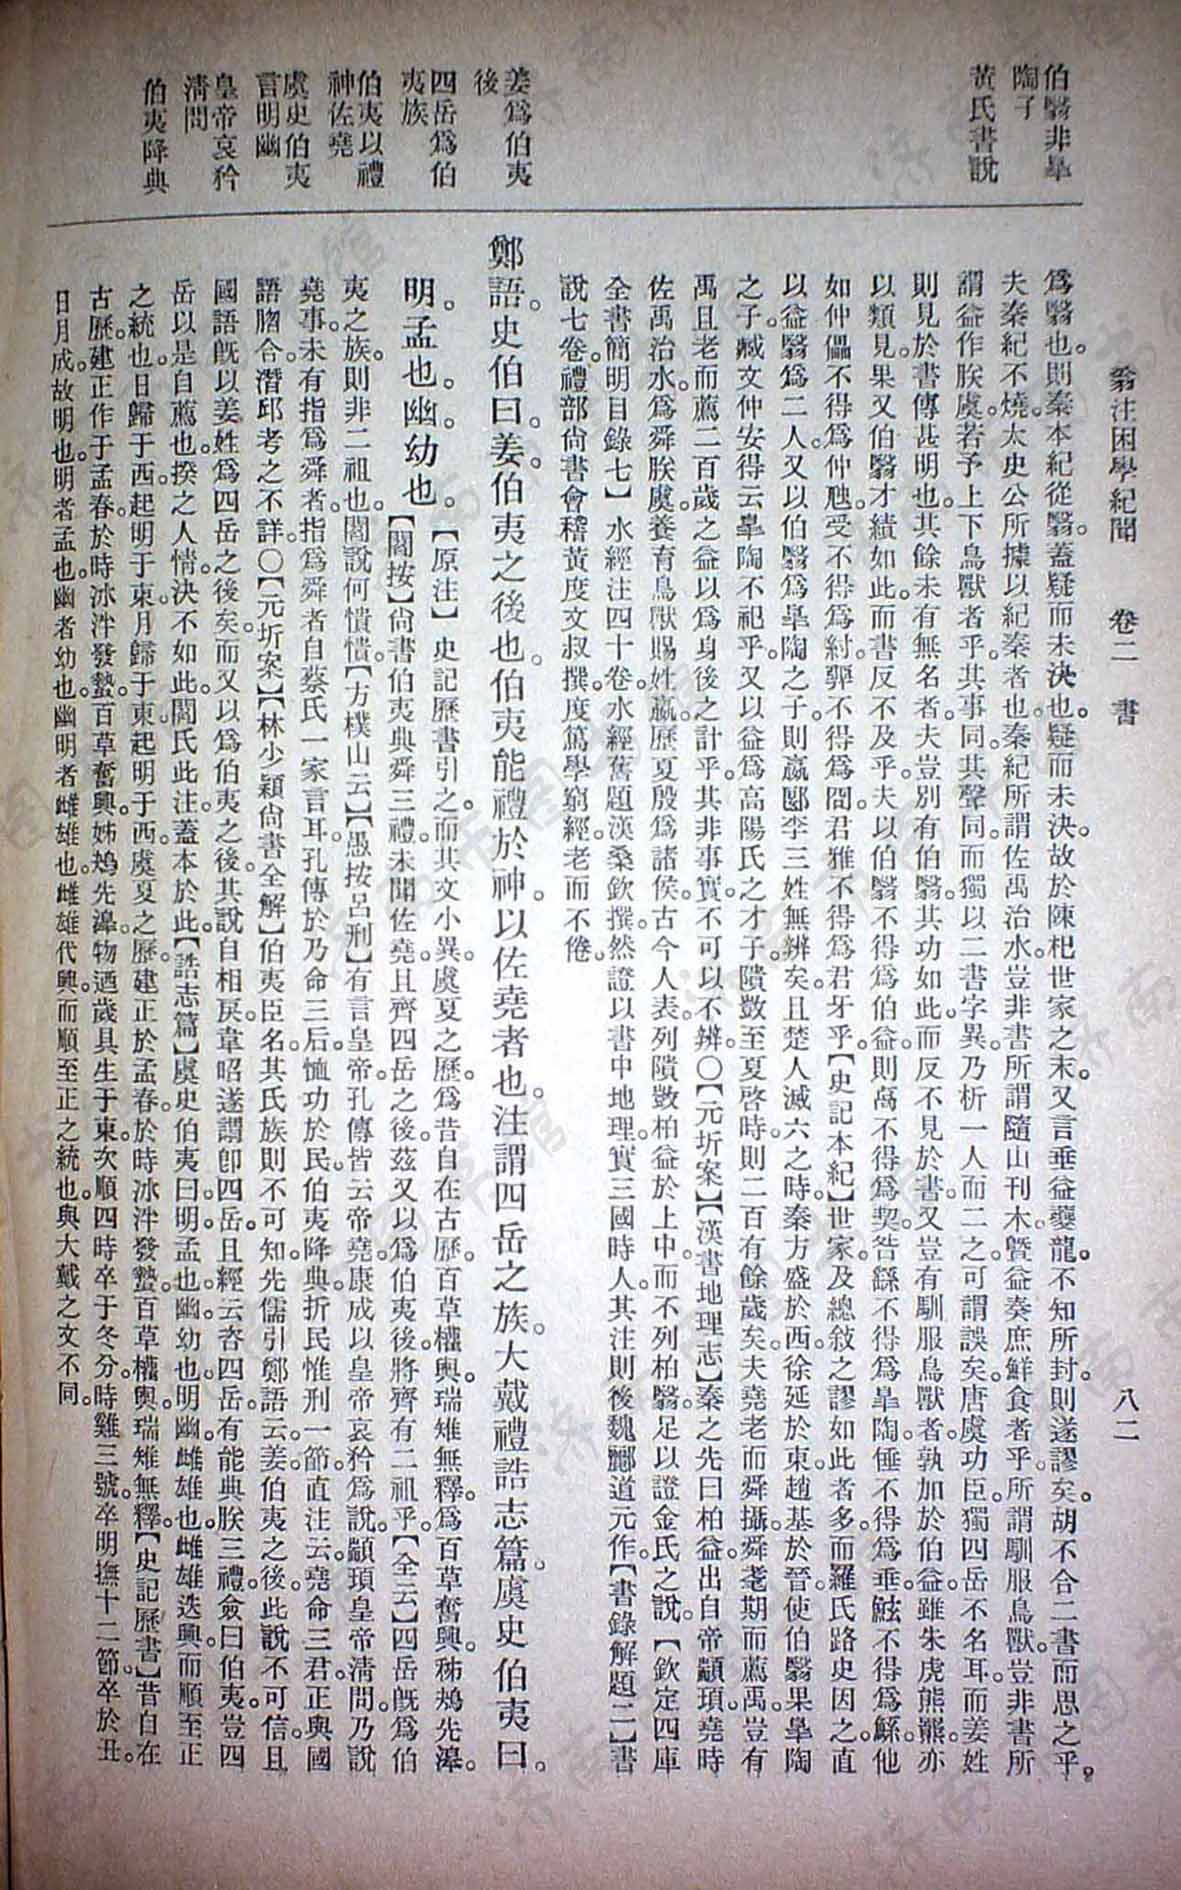 翁注困學紀聞　卷二　書　八二
伯翳非臯
陶子
黃氏書說
姜爲伯夷
後
四岳爲伯
夷族
伯夷以禮
神佐堯
虞史伯夷
言明幽
皇帝哀矜
清問
伯夷降典
爲翳也。則秦本紀從翳。蓋疑而未決也。疑而未決。故於陳杞世家之末。又言垂益夔龍。不知所封。則遂謬矣。胡不合二書而思之乎。
夫秦紀不燒。太史公所據以紀秦者也。秦紀所謂佐禹治水。豈非書所謂隨山刊木。曁益奏庶鮮食者乎。所謂馴服鳥獸。豈非書所
謂益作朕虞。若予上下鳥獸者乎。其事同。其聲同。而獨以二書字異。乃析一人而二之。可謂誤矣。唐虞功臣。獨四岳不名耳。而姜姓
則見於書傳甚明也。其餘未有無名者。夫豈別有伯翳。其功如此。而反不見於書。又豈有馴服鳥獸者。孰加於伯益。雖朱虎熊羆。亦
以類見。果又伯翳才績如此。而書反不及乎。夫以伯翳不得爲伯益。則卨不得爲契。咎繇不得爲臯陶。倕不得爲垂。鮌不得爲鯀。他
如仲儡不得爲仲虺。受不得爲紂。羿不得爲𦐧。君雅不得爲君牙乎。【史記本紀】世家及總敍之謬如此者多。而羅氏路史因之。直
以益翳爲二人。又以伯翳爲臯陶之子。則嬴郾李三姓無辨矣。且楚人滅六之時。秦方盛於西。徐延於東。趙基於晉。使伯翳果臯陶
之子。臧文仲安得云臯陶不祀乎。又以益爲高陽氏之才子。隤敳至夏啓時。則二百有餘歲矣。夫堯老而舜攝。舜耄期而薦禹。豈有
禹且老而薦二百歲之益以爲身後之計乎。其非事實。不可以不辨。〇【元圻案】【漢書地理志】秦之先曰柏益。出自帝顓頊。堯時
佐禹治水。爲舜朕虞。養育鳥獸。賜姓嬴。歷夏殷爲諸侯。古今人表。列隤敳柏益於上中。而不列柏翳。足以證金氏之說。【欽定四庫
全書簡明目錄七】水經注四十卷。水經舊題漢桑欽撰。然證以書中地理。實三國時人。其注則後魏酈道元作。【書錄解題二】書
說七卷。禮部尙書會稽黃度文叔撰。度篤學窮經。老而不倦。
鄭語。史伯曰。姜。伯夷之後也。伯夷能禮於神。以佐堯者也。注謂四岳之族。大戴禮誥志篇。虞史伯夷曰。
明。孟也。幽。幼也。【原注】史記歷書引之。而其文小異。虞夏之歷。爲昔自在古歷。百草權輿。瑞雉無釋。爲百草奮興。秭鴂先滜。
【閻按】尙書伯夷典舜三禮。未聞佐堯。且齊四岳之後。茲又以爲伯夷後。將齊有二祖乎。【全云】四岳旣爲伯
夷之族。則非二祖也。閻說何憒憒。【方樸山云】【愚按呂刑】有言皇帝。孔傳皆云帝堯。康成以皇帝哀矜爲說顓頊。皇帝清問。乃說
堯事。未有指爲舜者。指爲舜者。自蔡氏一家言耳。孔傳於乃命三后。恤功於民。伯夷降典。折民惟刑一節。直注云。堯命三君。正與國
語脗合。潛邱考之不詳。〇【元圻案】【林少穎尙書全解】伯夷臣名。其氏族則不可知。先儒引鄭語云。姜。伯夷之後。此說不可信。且
國語旣以姜姓爲四岳之後矣。而又以爲伯夷之後。其說自相戾。韋昭遂謂卽四岳。且經云咨四岳。有能典朕三禮。僉曰伯夷。豈四
岳以是自薦也。揆之人情。決不如此。閻氏此注。蓋本於此。【誥志篇】虞史伯夷曰。明。孟也。幽。幼也。明幽。雌雄也。雌雄迭興。而順至正
之統也。日歸于西。起明于東。月歸于東。起明于西。虞夏之歷。建正於孟春。於時冰泮發蟄。百草權輿。瑞雉無釋。【史記歷書】昔自在
古歷。建正作于孟春。於時冰泮發蟄。百草奮興。姊鴂先滜。物迺歲具。生于東。次順四時。卒于冬分。時雞三號。卒明撫十二節。卒於丑。
日月成。故明也。明者孟也。幽者幼也。幽明者雌雄也。雌雄代興。而順至正之統也。與大戴之文不同。